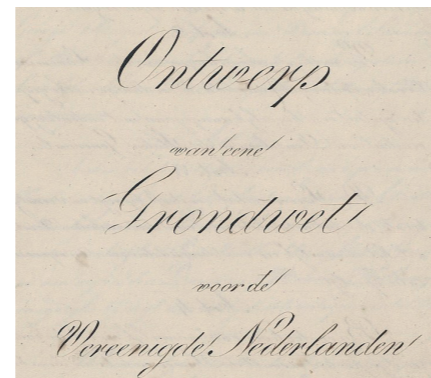 Ontwerp
van eene
Grondwet
voor de
Vereenigde Nederlanden